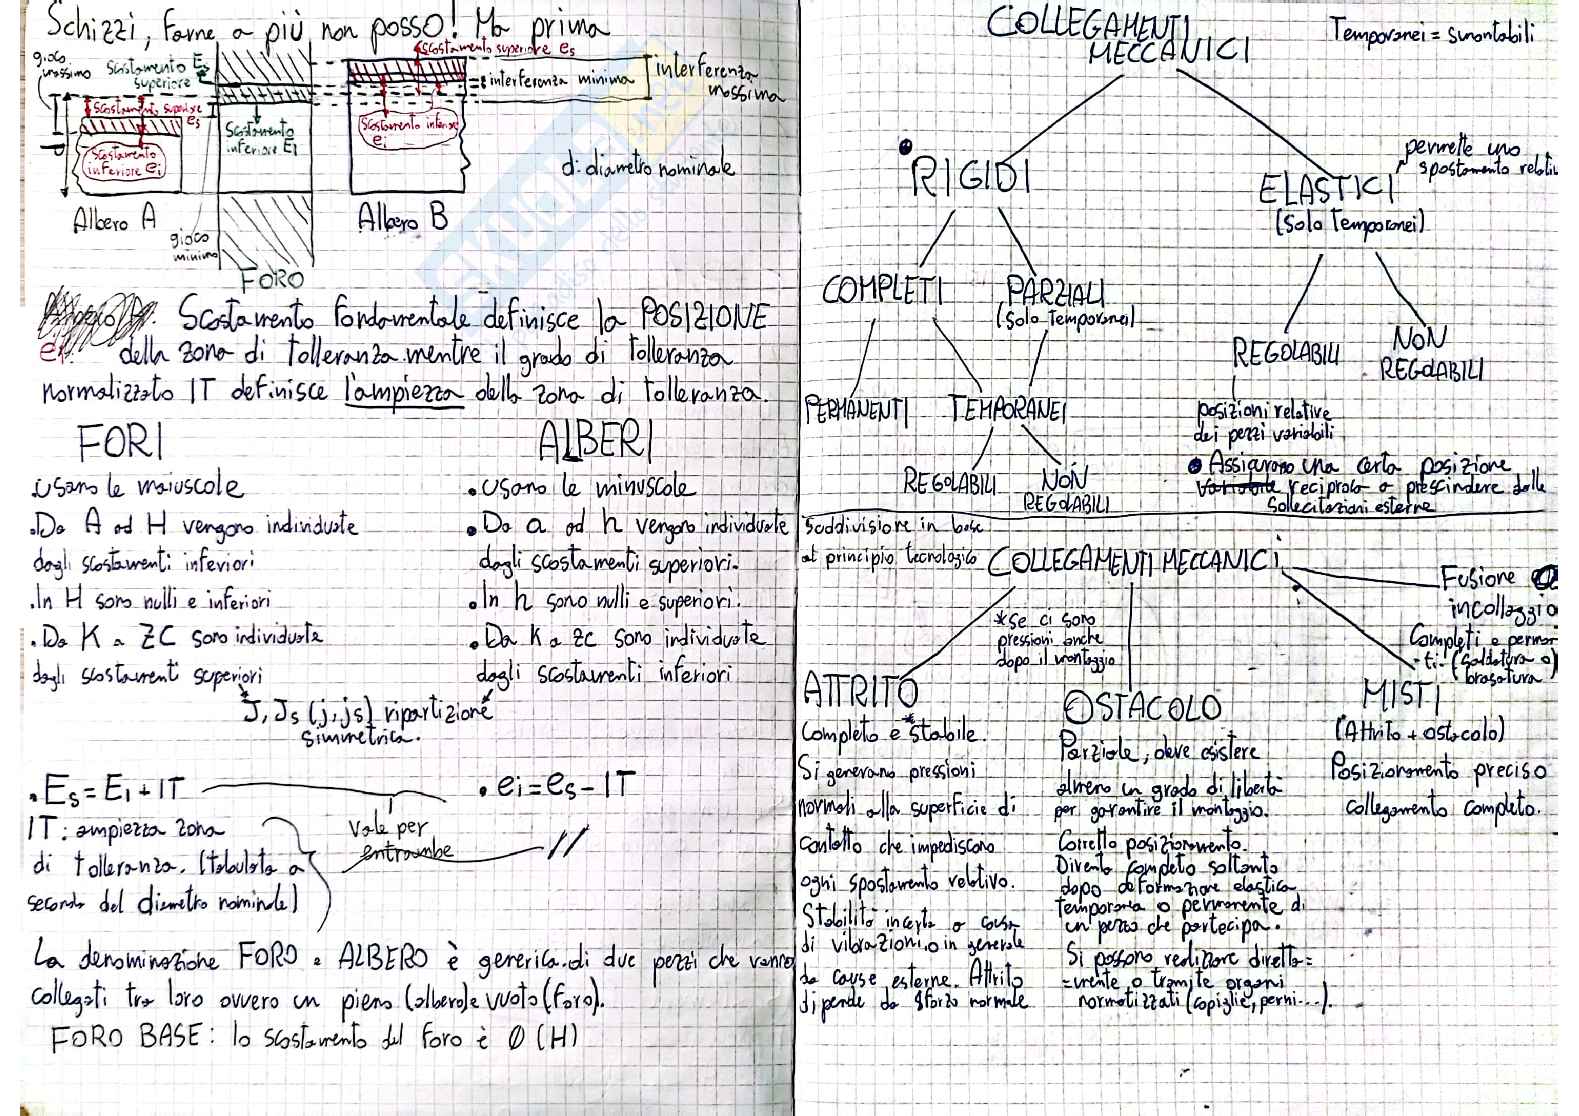 Schizzi, farne a più non posso! Ma prima
gioco
massimo
scostamento Es
superiore
scostamento superiore
es
scostamento
inferiore ei
Albero A
gioco
minimo
scostamento
inferiore EI
FORO
scostamento superiore es
interferenza minima
interferenza
massima
scostamento inferiore
ei
Albero B
d: diametro nominale
Scostamento fondamentale definisce la POSIZIONE
della zona di tolleranza mentre il grado di tolleranza
normalizzato IT definisce l'ampiezza della zona di tolleranza.
FORI
.usano le maiuscole
.Da A ad H vengono individuate
dagli scostamenti inferiori
.In H sono nulli e inferiori
.Da K a ZC sono individuate
dagli scostamenti superiori
ALBERI
.usano le minuscole
.Da a ad h vengono individuate
dagli scostamenti superiori.
.In h sono nulli e superiori.
.Da K a zc sono individuate
dagli scostamenti inferiori
J, Js (j, js) ripartizione
simmetrica.
.Es = EI + IT
.ei = es - IT
IT: ampiezza zona
di tolleranza. (tabulata a
seconda del diametro nominale)
Vale per
entrambe
//
La denominazione FORO e ALBERO è generica di due pezzi che vanno
collegati tra loro ovvero un pieno (albero) e vuoto (foro).
FORO BASE: lo scostamento del foro è Ø (H)
COLLEGAMENTI
MECCANICI
Temporanei = smontabili
RIGIDI
ELASTICI
(Solo Temporanei)
permette uno
spostamento relativ
COMPLETI
PARZIALI
(Solo Temporanei)
REGOLABILI
NON
REGOLABILI
PERMANENTI
TEMPORANEI
posizioni relative
dei pezzi variabili
REGOLABILI
NON
REGOLABILI
Assicurano una certa posizione
reciproca a prescindere dalle
sollecitazioni esterne
Suddivisione in base
al principio tecnologico
COLLEGAMENTI MECCANICI
Fusione
incollaggio
Completi e perman
-ti- (saldatura o)
brasatura
*Se ci sono
pressioni anche
dopo il montaggio
ATTRITO
Completo e *stabile.
Si generano pressioni
normali alla superficie di
contatto che impediscono
ogni spostamento relativo.
Stabilità incerta a causa
di vibrazioni o in generale
da cause esterne. Attrito
dipende da sforzo normale
OSTACOLO
Parziale, deve esistere
almeno un grado di libertà
per garantire il montaggio.
Corretto posizionamento.
Diventa completo soltanto
dopo deformazione elastica
temporanea o permanente di
un pezzo che partecipa.
Si possono realizzare diretta=
=mente o tramite organi
normatizzati (copiglie, perni...).
MISTI
(Attrito + ostacolo)
Posizionamento preciso
collegamento completo.